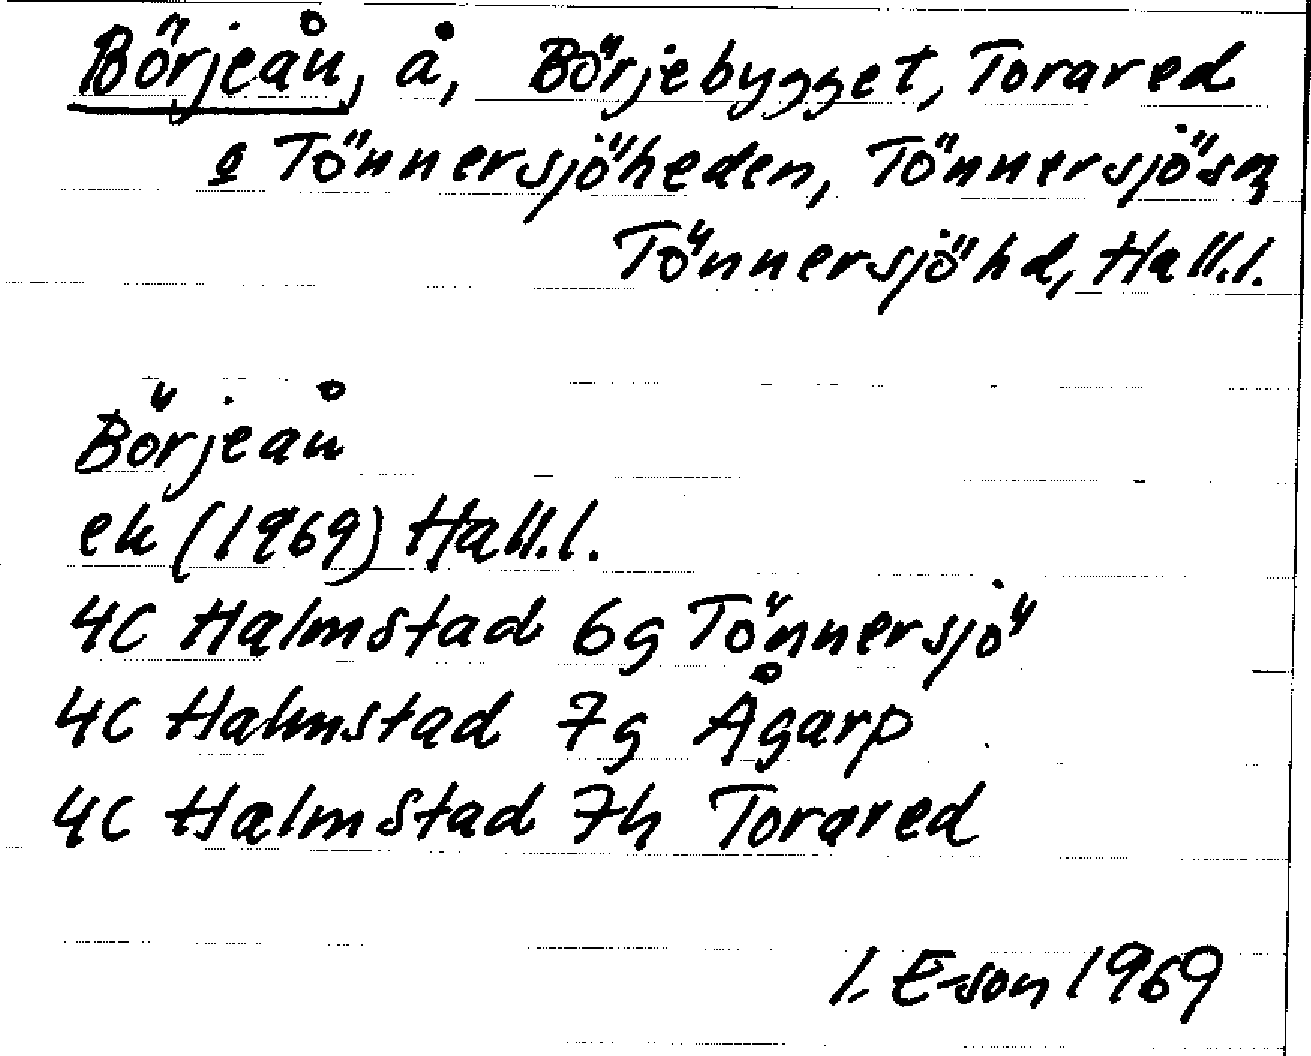 Börjeån, å, Börjebygget, Torared
o Tönnersjöheden, Tönnersjö sn
Tönnersjö hd, Hall.l.
Börjeån
ek (1969) Hall.l.
4C Halmstad 6g Tönnersjö
4C Halmstad 7g Ågarp
4C Halmstad 7h Torared
I. E-son 1969